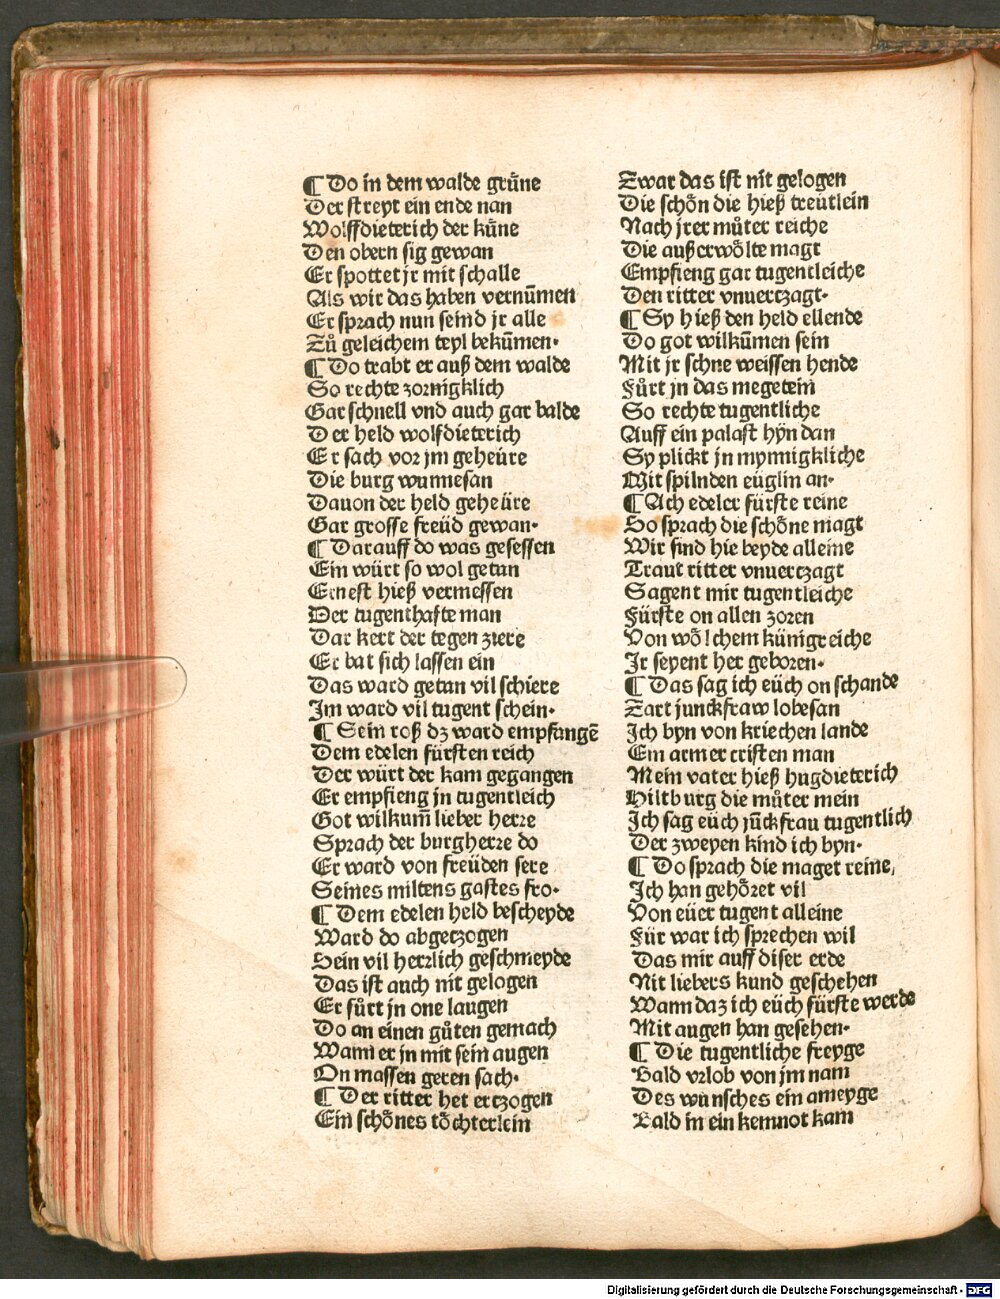 ¶ Do in dem walde gruͤne
Der streyt ein ende nan
Wolffdieterich der kuͤne
Den obern sig gewan
Er spottet jr mit schalle
Als wir das haben vernūmen
Er sprach nun seind jr alle
Zuͦ geleichem teyl bekūmen·
¶ Do trabt er auß dem walde
So rechte zornigklich
Gar schnell vnd auch gar balde
Der held wolfdieterich
Er sach vor jm geheüre
Die burg wunnesan
Dauon der held geheüre
Gar grosse freüd gewan·
¶ Darauff do was gesessen
Ein würt so wol getan
Ernest hieß vermessen
Der tugenthafte man
Dar kert der tegen ziere
Er bat sich lassen ein
Das ward getan vil schiere
Im ward vil tugent schein·
¶ Sein roß dz ward empfangē
Dem edelen fürsten reich
Der würt der kam gegangen
Er empfieng jn tugentleich
Got wilkum̄ lieber herre
Sprach der burgherre do
Er ward von freüden sere
Seines miltens gastes fro·
¶ Dem edelen held bescheyde
Ward do abgetzogen
Sein vil herrlich geschmeyde
Das ist auch nit gelogen
Er fuͦrt jn one laugen
Do an einen guͦten gemach
Wann er jn mit sein augen
On massen geren sach·
¶ Der ritter het ertzogen
Ein schoͤnes toͤchterlein
Zwar das ist nit gelogen
Die schoͤn die hieß treütlein
Nach jrer muͦter reiche
Die außerwoͤlte magt
Empfieng gar tugentleiche
Den ritter vnuertzagt·
¶ Sy hieß den held ellende
Do got wilkūmen sein
Mit jr schne weissen hende
Fuͦrt jn das megetein
So rechte tugentliche
Auff ein palast hyn dan
Sy plickt jn mynnigkliche
Mit spilnden eüglin an·
¶ Ach edeler fürste reine
So sprach die schoͤne magt
Wir sind hie beyde alleine
Traut ritter vnuertzagt
Sagent mir tugentleiche
Fürste on allen zoren
Von woͤlchem künigreiche
Ir seyent her geboren·
¶ Das sag ich eüch on schande
Zart junckfraw lobesan
Ich byn von kriechen lande
Ein armer cristen man
Mein vater hieß hugdieterich
Hiltburg die muͦter mein
Ich sag eüch jūckfrau tugentlich
Der zweyen kind ich byn·
¶ Do sprach die maget reine,
Ich han gehoͤret vil
Von eüer tugent alleine
Für war ich sprechen wil
Das mir auff diser erde
Nit liebers kund geschehen
Wann daz ich eüch fürste werde
Mit augen han gesehen·
¶ Die tugentliche freyge
Bald vrlob von jm nam
Des wunsches ein ameyge
Bald in ein kemnot kam
Digitalisierung gefördert durch die Deutsche Forschungsgemeinschaft - DFG